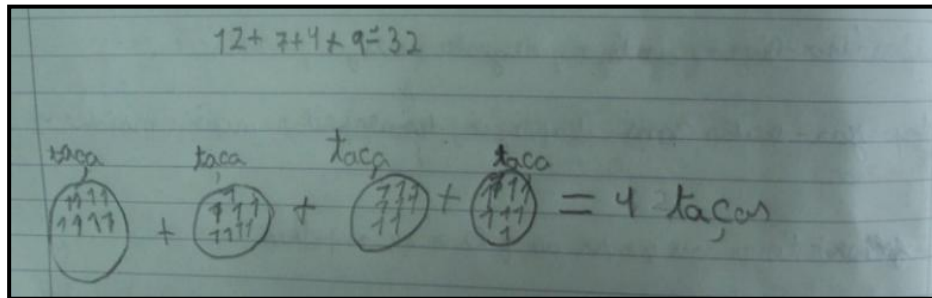 12+7+4+9=32
taça taça taça taça
1111 1 111 1111
1111 + 111 + 111 + 111 = 4 taças
1111 11 1